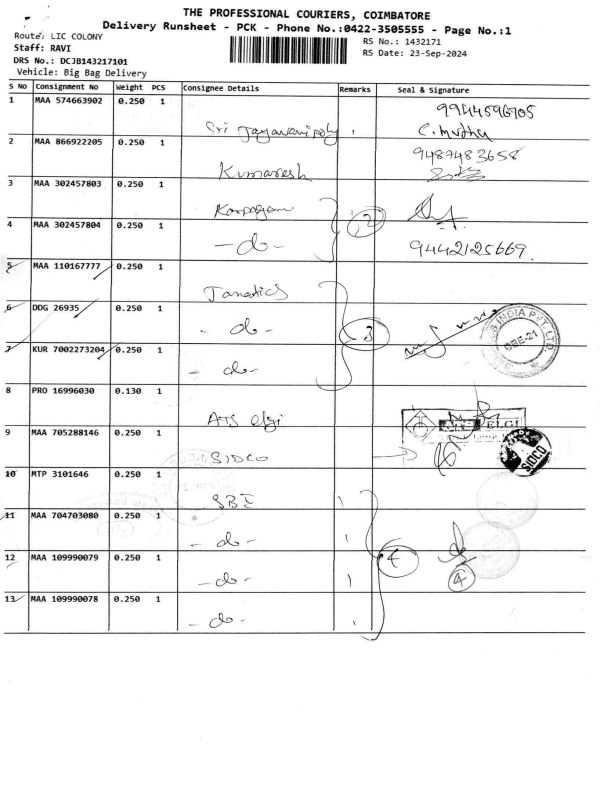 THE PROFESSIONAL COURIERS, COIMBATORE
Delivery Runsheet - PCK - Phone No.:0422-3505555 - Page No.:1
Route: LIC COLONY
Staff: RAVI
DRS No.: DCJB143217101
Vehicle: Big Bag Delivery
RS No.: 1432171
RS Date: 23-Sep-2024
S No Consignment No Weight PCS Consignee Details Remarks Seal & Signature
1 MAA 574663902 0.250 1 9944596705
Sri C.Muthu
2 MAA 866922205 0.250 1 9487483658
Kumaresh
3 MAA 302457803 0.250 1
Karpagam
2
4 MAA 302457804 0.250 1
- do - 9442125669.
5 MAA 110167777 0.250 1
Janatics
6 DDG 26935 0.250 1
- do -
3
INDIA PVT LTD
CBE-21
7 KUR 7002273204 0.250 1
- do -
8 PRO 16996030 0.130 1
ATS elgi ELGI
9 MAA 705288146 0.250 1
SIDCO SIDCO
10 MTP 3101646 0.250 1
SBI
11 MAA 704703080 0.250 1
- do -
12 MAA 109990079 0.250 1 4
- do - 4
13 MAA 109990078 0.250 1
- do -